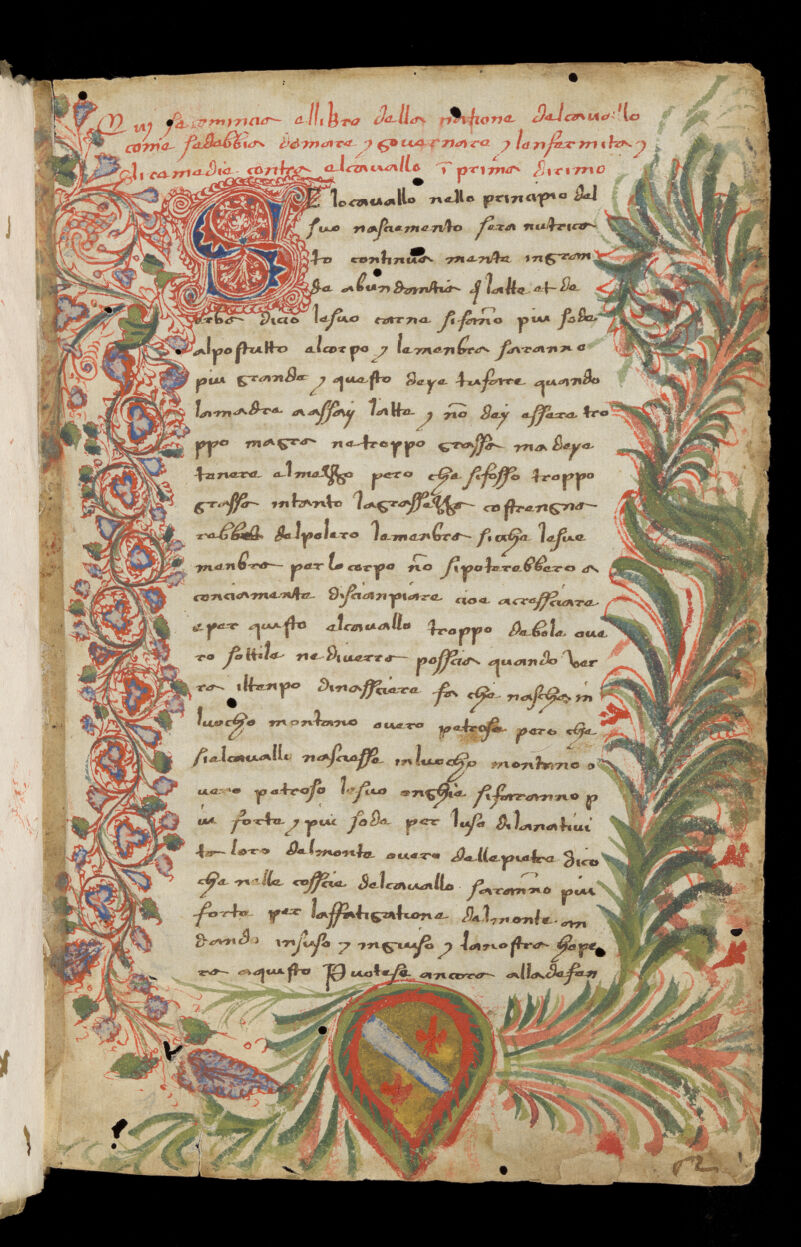 Quj se comincia ellibro della natione delcauallo
come sedebbia domare ⁊ gouernare ⁊ lenfermita ⁊
li remedie contra elcauallo ī prima dicimo
SE locauallo nello principio del
suo nascemento sera nutrica
to continua mente ingran
de abundantia d latte et de
erba dico lesuo carne sifarāno piu sode
alpostutto elcorpo ⁊ lemenbra saranno
piu grande ⁊ questo deye tufare quando
lamadre aassaij latte ⁊ nō dey essere tro
ppo magra netroppo grassa ma deye
tenere elmezzo pero che sifosso troppo
grassa intanto lagrassezza costrengna
rebbe delpolero lemenbra sicche lesue
menbra per lo corpo nō sipoterebbero a
conciamente discianpiare cioe acressciare
eper questo elcauallo troppo debole oue
ro sottile nediuerra posscia quando ver
ra iltenpo dinassciere fa che nascha in
luocho montano ouero petroso pero che
sielcauallo nasciesse inluocho montano o
uero petroso lesuo onghie sifaranno p
iu forte ⁊ piu sode per luso dilanatiui
ta loro delmonte ouero dellepietre dico
che nelle cosscie delcauallo sarāno piu
forte per laffatigatione delmonte an
dando insuso ⁊ ingiuso ⁊ lanostra hope
ra aquisto Puotese ancora alladefen
52